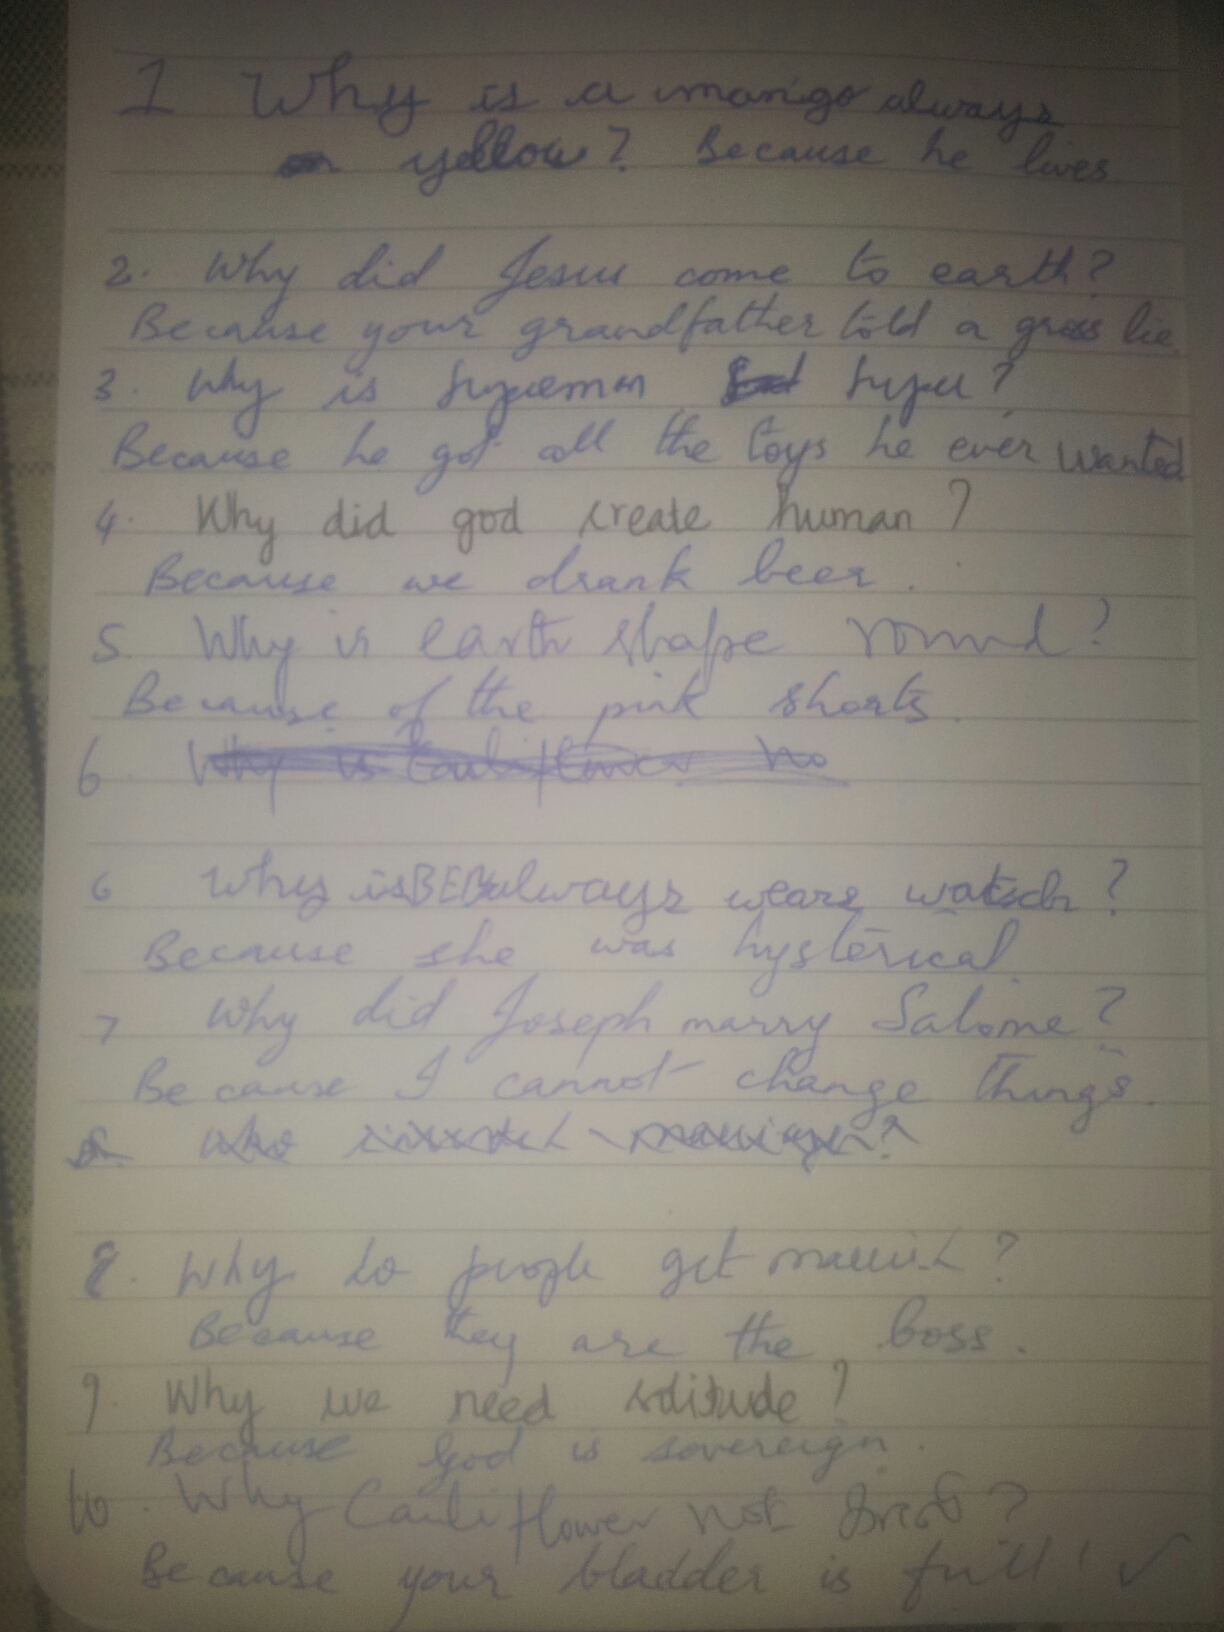 1 Why is a mango always
yellow? Because he lives
2. Why did Jesus come to earth?
Because your grandfather told a gross lie.
3. Why is
Because he got all the toys he ever wanted
4. Why did god create human?
Because we drank beer.
5. Why is earth shape round?
Because of the pink shorts.
6. Why is Cauliflower no
6 Why is always wears
Because she was hysterical.
7 Why did Joseph marry Salome?
Because I cannot change things.
8. Why do people get married?
Because they are the boss.
9. Why we need solitude?
Because God is sovereign.
10. Why Cauliflower not
Because your bladder is full!